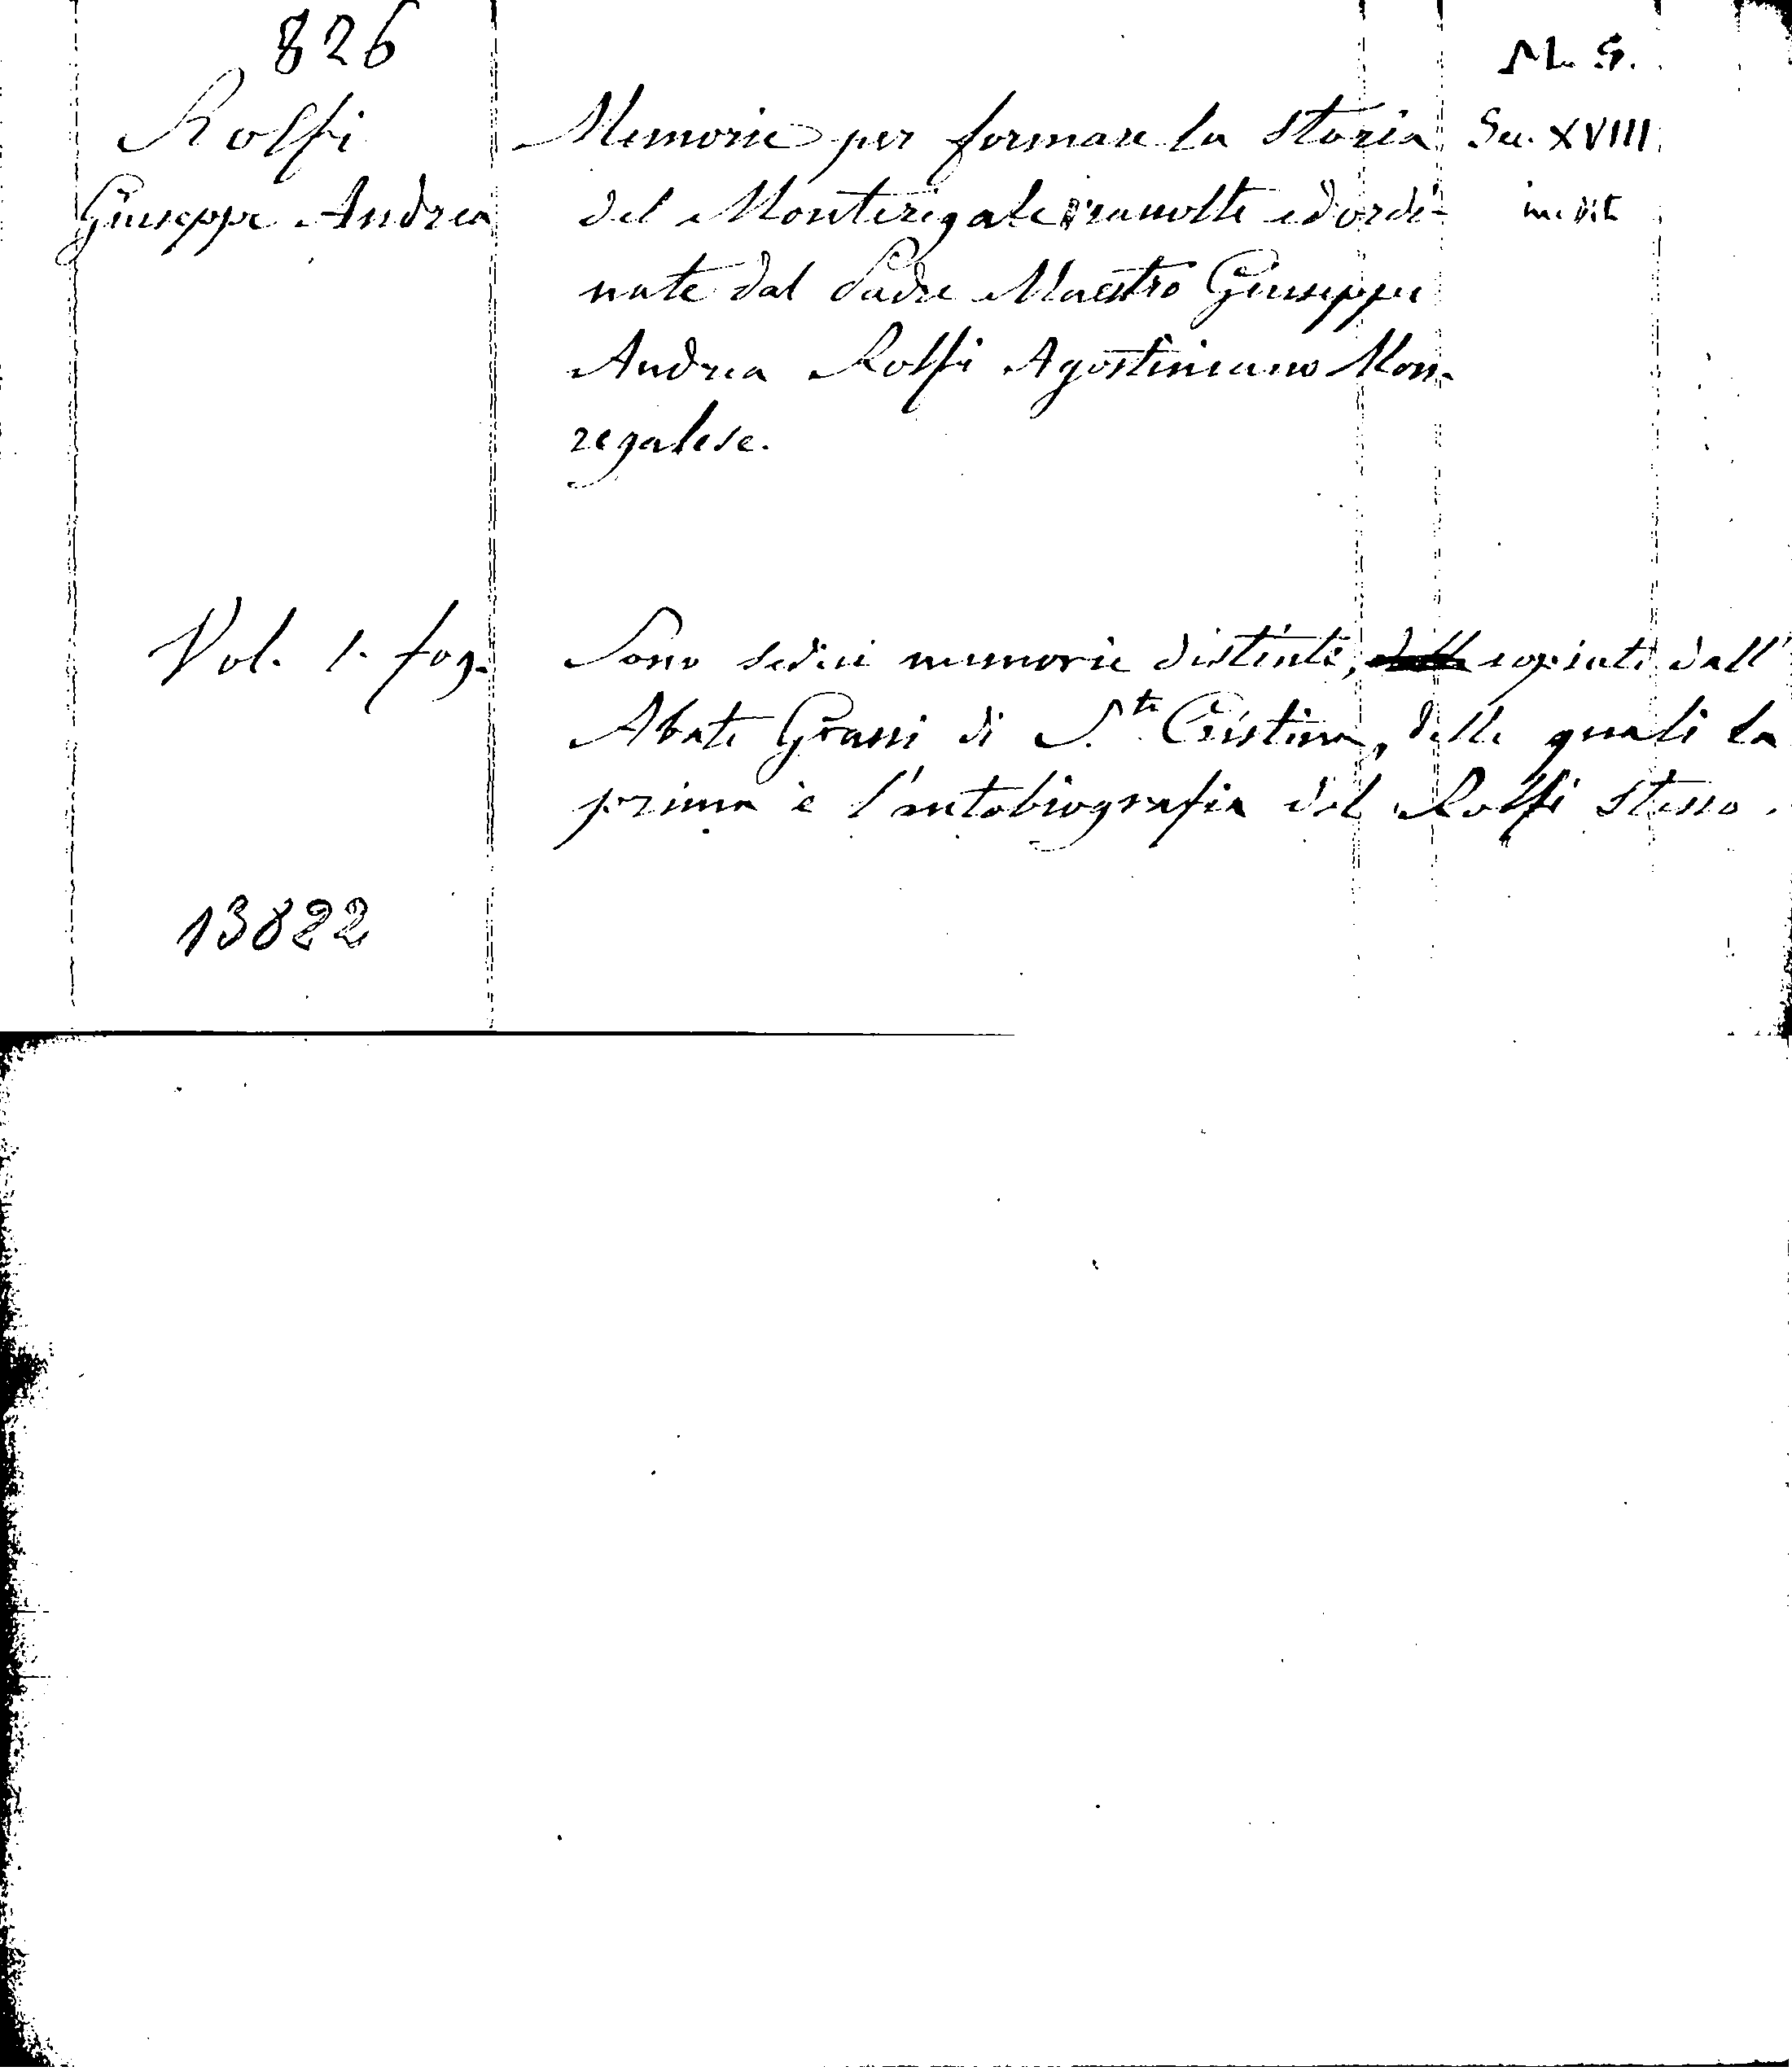 826
Rolfi
Giuseppe Andrea
Memorie per formare la storia
del Monteregale raccolte ed ordi-
nate dal Padre Maestro Giuseppe
Andrea Rolfi Agostiniano Mon-
regalese.
M. S.
Sec. XVIII
inedit
Vol. 1. fog.
Sono sedici memorie distinte, copiate dall'
Abate Grassi di S.ta Cristina, delle quali la
prima è l'autobiografia del Rolfi stesso.
13822